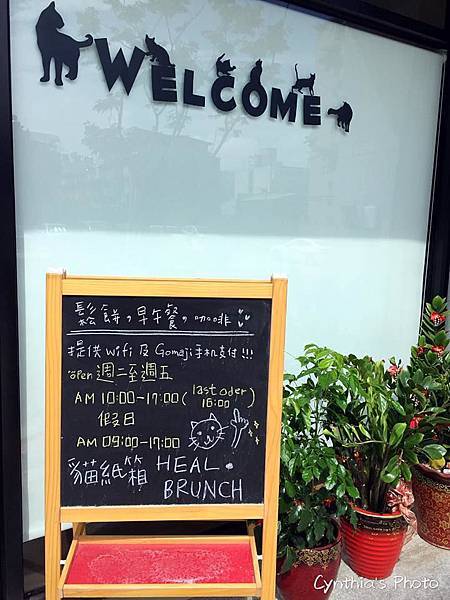 WELCOME
鬆餅，早午餐，咖啡
提供 wifi 及 Gomaji 手机支付!!!
open 週二至週五
AM 10:00~17:00 (last oder 16:00)
假日
AM 09:00~17:00
貓紙箱 HEAL
BRUNCH
Cynthia's Photo